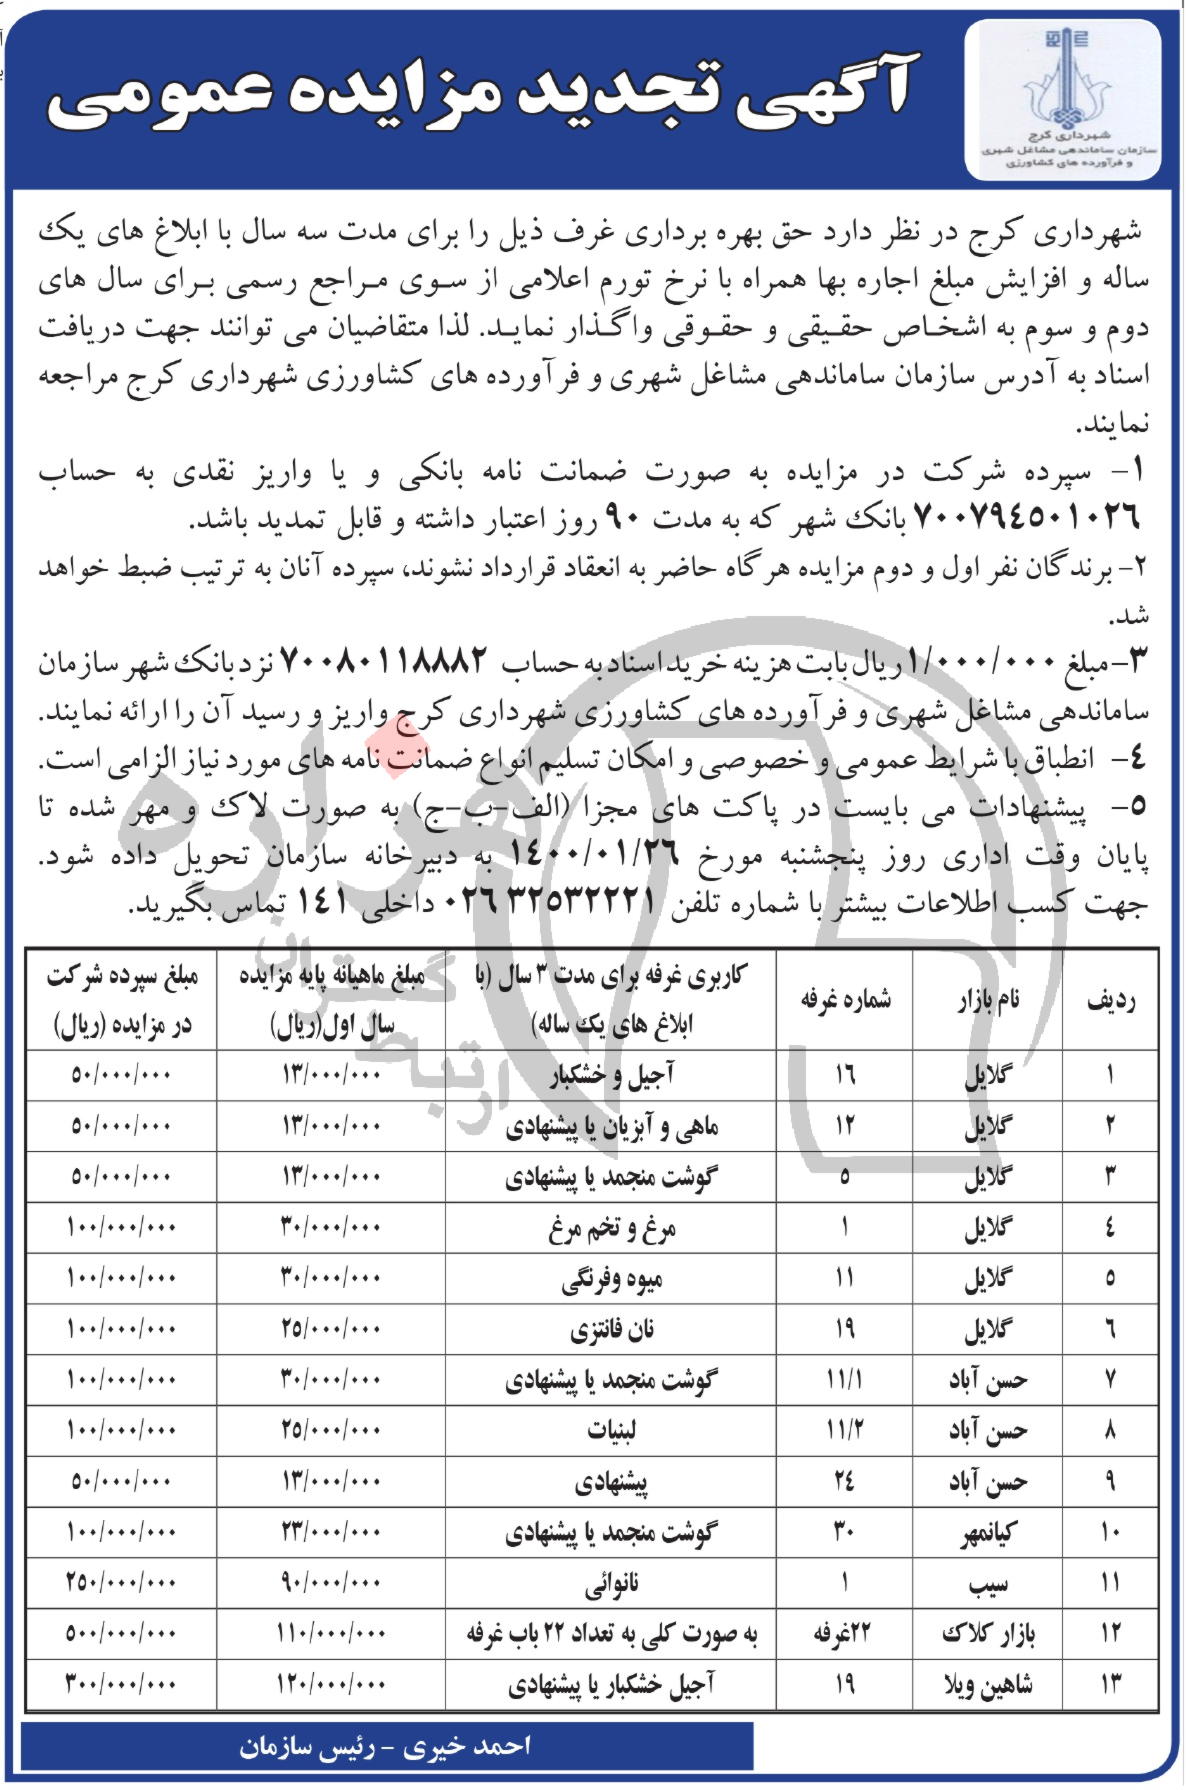 آگهی تجدید مزایده عمومی
شهرداری کرج
سازمان ساماندهی مشاغل شهری
و فرآورده های کشاورزی
شهرداری کرج در نظر دارد حق بهره برداری غرف ذیل را برای مدت سه سال با ابلاغ های یک
ساله و افزایش مبلغ اجاره بها همراه با نرخ تورم اعلامی از سوی مراجع رسمی برای سال های
دوم و سوم به اشخاص حقیقی و حقوقی واگذار نماید. لذا متقاضیان می توانند جهت دریافت
اسناد به آدرس سازمان ساماندهی مشاغل شهری و فرآورده های کشاورزی شهرداری کرج مراجعه
نمایند.
۱- سپرده شرکت در مزایده به صورت ضمانت نامه بانکی و یا واریز نقدی به حساب
۷۰۰۷۹٤۵۰۱۰۲۶ بانک شهر که به مدت ۹۰ روز اعتبار داشته و قابل تمدید باشد.
۲- برندگان نفر اول و دوم مزایده هرگاه حاضر به انعقاد قرارداد نشوند، سپرده آنان به ترتیب ضبط خواهد
شد.
۳- مبلغ ۱/۰۰۰/۰۰۰ ریال بابت هزینه خرید اسناد به حساب ۷۰۰۸۰۱۱۸۸۸۲ نزد بانک شهر سازمان
ساماندهی مشاغل شهری و فرآورده های کشاورزی شهرداری کرج واریز و رسید آن را ارائه نمایند.
٤- انطباق با شرایط عمومی و خصوصی و امکان تسلیم انواع ضمانت نامه های مورد نیاز الزامی است.
۵- پیشنهادات می بایست در پاکت های مجزا (الف-ب-ج) به صورت لاک و مهر شده تا
پایان وقت اداری روز پنجشنبه مورخ ۱٤۰۰/۰۱/۲۶ به دبیرخانه سازمان تحویل داده شود.
جهت کسب اطلاعات بیشتر با شماره تلفن ۳۲۵۳۲۲۲۱ ۰۲۶ داخلی ۱٤۱ تماس بگیرید.
ردیف نام بازار شماره غرفه کاربری غرفه برای مدت ۳ سال (با ابلاغ های یک ساله) مبلغ ماهیانه پایه مزایده سال اول(ریال) مبلغ سپرده شرکت در مزایده (ریال)
۱ گلایل ۱۶ آجیل و خشکبار ۱۳/۰۰۰/۰۰۰ ۵۰/۰۰۰/۰۰۰
۲ گلایل ۱۲ ماهی و آبزیان یا پیشنهادی ۱۳/۰۰۰/۰۰۰ ۵۰/۰۰۰/۰۰۰
۳ گلایل ۵ گوشت منجمد یا پیشنهادی ۱۳/۰۰۰/۰۰۰ ۵۰/۰۰۰/۰۰۰
٤ گلایل ۱ مرغ و تخم مرغ ۳۰/۰۰۰/۰۰۰ ۱۰۰/۰۰۰/۰۰۰
۵ گلایل ۱۱ میوه وفرنگی ۳۰/۰۰۰/۰۰۰ ۱۰۰/۰۰۰/۰۰۰
۶ گلایل ۱۹ نان فانتزی ۲۵/۰۰۰/۰۰۰ ۱۰۰/۰۰۰/۰۰۰
۷ حسن آباد ۱۱/۱ گوشت منجمد یا پیشنهادی ۳۰/۰۰۰/۰۰۰ ۱۰۰/۰۰۰/۰۰۰
۸ حسن آباد ۱۱/۲ لبنیات ۲۵/۰۰۰/۰۰۰ ۱۰۰/۰۰۰/۰۰۰
۹ حسن آباد ۲٤ پیشنهادی ۱۳/۰۰۰/۰۰۰ ۵۰/۰۰۰/۰۰۰
۱۰ کیانمهر ۳۰ گوشت منجمد یا پیشنهادی ۲۳/۰۰۰/۰۰۰ ۱۰۰/۰۰۰/۰۰۰
۱۱ سیب ۱ نانوائی ۹۰/۰۰۰/۰۰۰ ۲۵۰/۰۰۰/۰۰۰
۱۲ بازار کلاک ۲۲غرفه به صورت کلی به تعداد ۲۲ باب غرفه ۱۱۰/۰۰۰/۰۰۰ ۵۰۰/۰۰۰/۰۰۰
۱۳ شاهین ویلا ۱۹ آجیل خشکبار یا پیشنهادی ۱۲۰/۰۰۰/۰۰۰ ۳۰۰/۰۰۰/۰۰۰
احمد خیری - رئیس سازمان
هزاره
ارتباط گستران